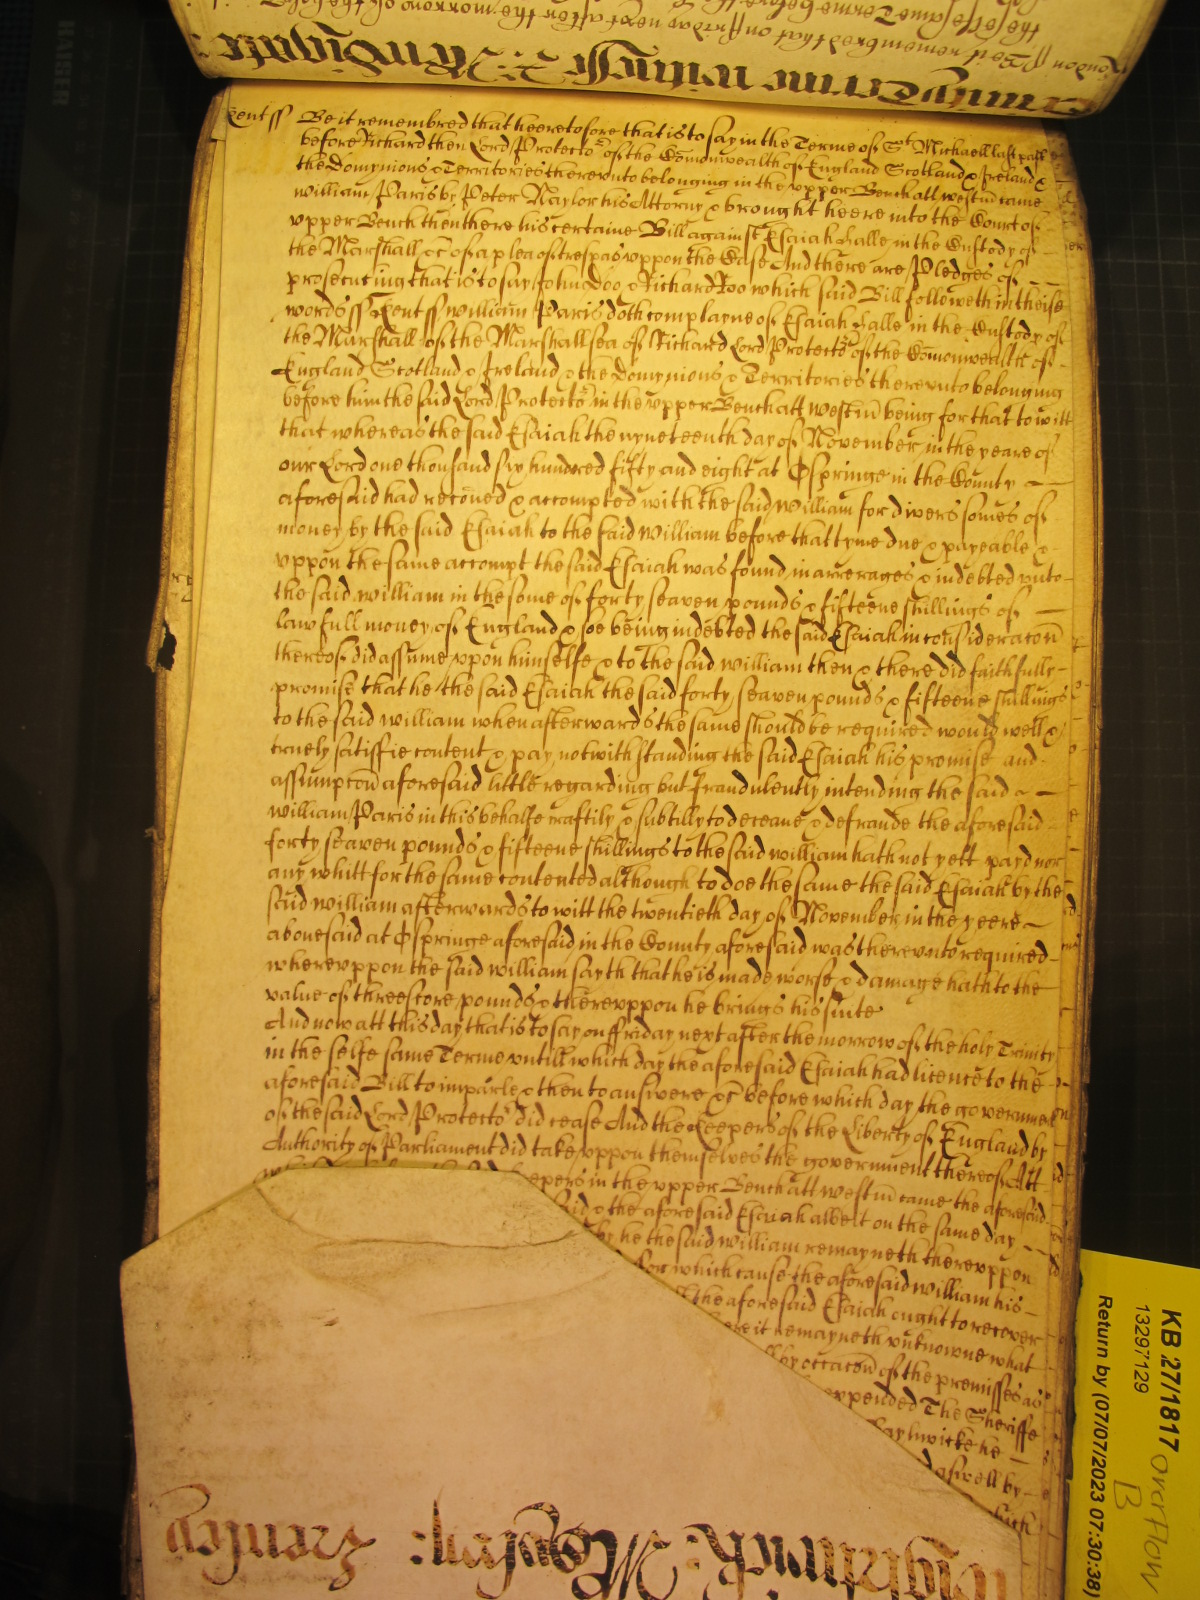 Trinity Terme
Kent ss Be it remembred that heeretofore that is to say in the Terme of St Michaell last past
before Richard then Lord Protector of the Comonwealth of England Scotland & Ireland &
the Dominions & Territories thereunto belonging in the upper Bench att westm came
william Paris by Peter Naylor his Attorny & brought heere into the Court of
upper Bench then there his certaine Bill against Esaiah Halle in the Custody of
the Marshall &c of a plea of trespas uppon the Case And there are Pledges of
prosecuting that is to say John Doo & Richard Roo which said Bill followeth in theise
words ss Kent ss william Paris doth complayne of Esaiah Halle in the Custody of
the Marshall of the Marshallsea of Richard Lord Protector of the Comonwealth of
England Scotland & Ireland & the Dominions & Territories thereunto belonging
before him the said Lord Protector in the upper Bench att westm being for that to witt
that whereas the said Esaiah the nyneteenth day of November in the yeare of
our Lord one thousand six hundred fifty and eight at Ospringe in the County
aforesaid had reconed & accompted with the said william for divers somes of
money by the said Esaiah to the said william before that tyme due & payeable &
uppon the same accompt the said Esaiah was found in arrerages & indebted unto
the said william in the some of forty seaven pounds & fifteene shillings of
lawfull money of England & soe being indebted the said Esaiah in consideracon
thereof did assume uppon himselfe & to the said william then & there did faithfully
promise that he the said Esaiah the said forty seaven pounds & fifteene shillings
to the said william when afterwards the same should be required would well &
truely satisfie content & pay notwithstanding the said Esaiah his promise and
assumpcon aforesaid little regarding but fraudulently intending the said
william Paris in this behalfe craftily & subtilly to deceave & defraude the aforesaid
forty seaven pounds & fifteene shillings to the said william hath not yett payd nor
any whitt for the same contented although to doe the same the said Esaiah by the
said william afterwards to witt the twentieth day of November in the yeere
abovesaid at Ospringe aforesaid in the County aforesaid was thereunto required
whereuppon the said william sayth that he is made worse & damage hath to the
value of threescore pounds & thereuppon he brings his suite
And now att this day that is to say on ffriday next after the morrow of the holy Trinity
in the selfe same Terme untill which day the aforesaid Esaiah had licence to the
aforesaid Bill to imparle & then to answere &c before which day the government
of the said Lord Protector did cease And the Keepers of the Liberty of England by
Authority of Parliament did take uppon themselves the government thereof Att
keepers in the upper Bench att westm came the aforesaid
& the aforesaid Esaiah albeit on the same day
by he the said william remayneth thereuppon
for which cause the aforesaid william his
the aforesaid Esaiah ought to recover
it remayneth unknowne what
by occacon of the premisses as
expended The Sheriffe
Baylywicke he
aswell by
such
KB 27/1817 overflow
13297129 B
Return by (07/07/2023 07:30:38)